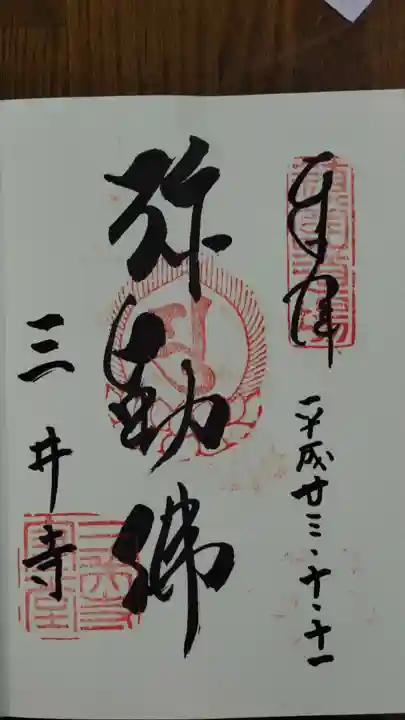 奉拝
平成廿三・十・十一
弥勒佛
三井寺